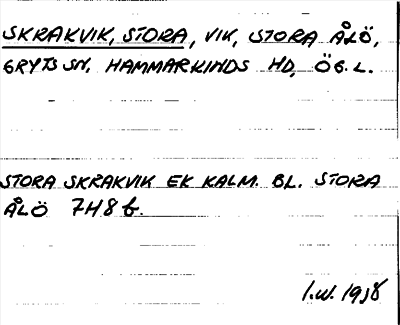 SKRAKVIK, STORA, VIK, STORA ÅLÖ,
GRYTS SN, HAMMARKINDS HD, ÖG. L.
STORA SKRAKVIK EK KALM. BL. STORA
ÅLÖ 7H8f.
I.W. 1978